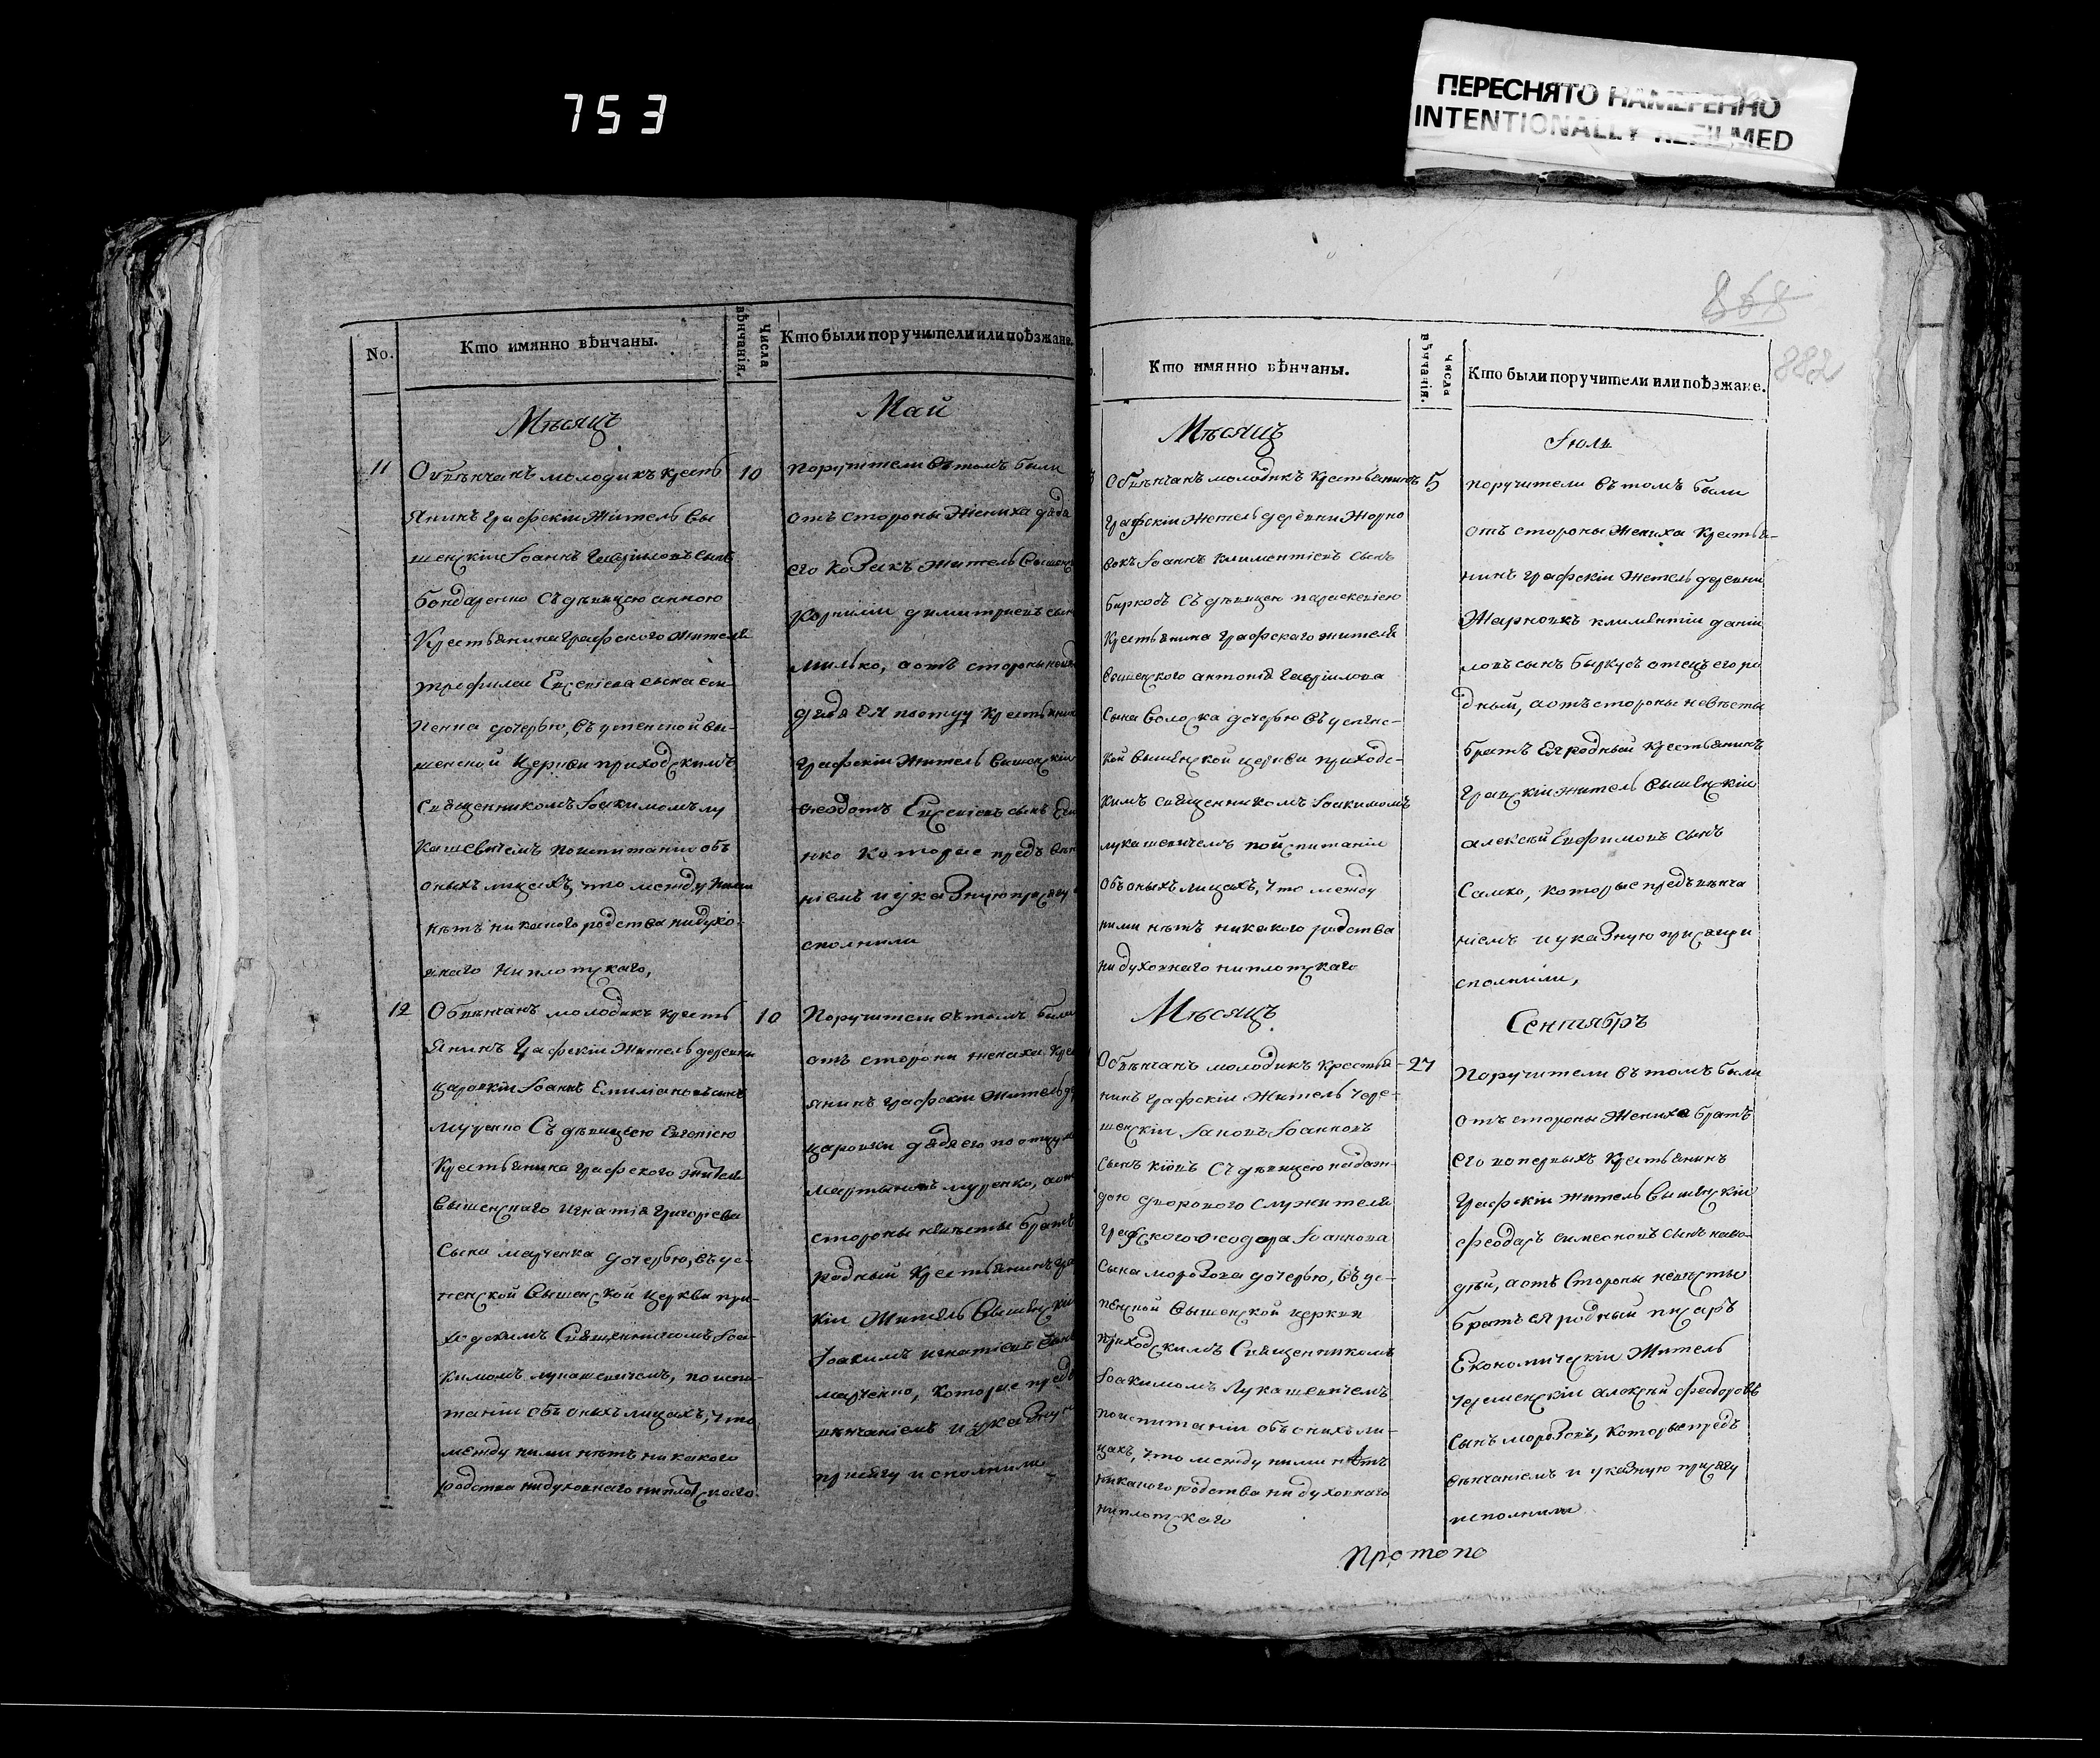 753
ПЕРЕСНЯТО НАМЕРЕННО
INTENTIONALLY REFILMED
868
882
No.
Кто имянно вѣнчаны.
Числа вѣнчанія.
Кто были поручители или поѣзжане.
Мѣсяцъ
Май
11
Обвѣнчанъ молодикъ кресть
янинъ графскіи житель вы
шенскіи Іоаннъ Гавріиловъ сынъ
бондаренко Съ дѣвицею анною
Крестьянина графского жителя
трофима Евсевіева сына
дочерью, въ успенской вы-
шенской Церкви приходскимъ
Священникомъ Іоакимомъ лу
кашевичемъ поиспитаніи объ
оныхъ лицахъ, что между ними
нѣтъ никакого родства нидухо-
внаго ниплотскаго,
10
поручители вътомъ были
отъ стороны жениха дядя
его козакъ житель вышенс
Корнилій димитріевъ сын
милько, аотъ стороны
дядя ея поотцу крестьянин
графскіи житель вишенскіи
феодотъ Евсевіевъ сынъ
нко которые предъ вѣн
ніемъ и указную присягу
сполнили
12
Обвѣнчанъ молодикъ кресть
янинъ графскіи житель деревни
царовкіи Іоаннъ Емиліановъ сынъ
муренко Съ дѣвицею Евгеніею
Крестьянина графского жителя
вышенскаго игнатія григоріева
Сына марченка дочерью, въ ус-
пенской вышенской церкви при-
ходскимъ Священникомъ Іоа-
кимомъ лукашевичемъ, по испи-
таніи объ оныхъ лицахъ, что
между ними нѣтъ никакого
родства нидуховнаго ниплотскаго
10
Поручители вътомъ были
отъ стороны жениха Кре
янинъ графскіи житель де
царовки дядя его поотцу
мартыновъ муренко, аот
стороны невѣсты братъ
родный Крестьянинъ гра
кіи житель вышенскіи
Іоакимъ игнатіевъ сынъ
марченко, которые предъ
вѣнчаніемъ и указную
присягу исполнили
Кто имянно вѣнчаны.
Числа вѣнчанія.
Кто были поручители или поѣзжане.
Мѣсяцъ
Іюль
Обвѣнчанъ молодикъ крестьянинъ
графскіи житель деревни Жорно
вокъ Іоаннъ климентіевъ сынъ
Съ дѣвицею параскевіею
Крестьянина графскаго жителя
вышенского антонія гавріилова
Сына воложа дочерью въ успенс-
кой вышенской церкви приходс-
кимъ священникомъ Іоакимомъ
лукашевичемъ поиспитаніи
объ оныхъ лицахъ, что между
ними нѣтъ никакого родства
нидуховнаго ниплотскаго
5
поручители вътомъ были
отъ стороны жениха крестья-
нинъ графскіи житель деревни
Жарновкъ климентіи даніи
ловъ сынъ отецъ его ро
дный, аотъ стороны невѣсты
братъ Ея родный крестьянинъ
графскіи житель вышенскіи
алексѣй Евфимовъ сынъ
Самко, которые предъ вѣнча
ніемъ и указную присягу и
сполнили,
Мѣсяцъ
Сентябръ
Обвѣнчанъ молодикъ Крестья-
нинъ графскіи Житель Чере-
шенскіи Іаковъ Іоанновъ
Сынъ Съ дѣвицею
дворового служителя
графского феодора Іоаннова
Сына морозова дочерью, въ ус-
пенской вышенской церкви
приходскимъ Священникомъ
Іоакимомъ Лукашевичемъ
поиспитаніи объ онихъ ли-
цахъ, что между ними нѣтъ
никакого родства нидуховнаго
ниплотскаго
27
Поручители вътомъ были
отъ стороны Жениха братъ
его вопервыхъ крестьянинъ
графскіи житель вышенскіи
феодоръ симеоновъ сынъ
аотъ Стороны невѣсты
братъ ея родный писаръ
Економическіи житель
Черешенскіи алексѣй феодоровъ
Сынъ морозовъ, которые предъ
вѣнчаніемъ и указную присягу
исполнили
Протопо